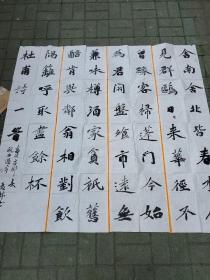 舍南舍北皆春
見群鷗日日來華徑不
曾緣客掃蓬門今始
為君開盤飧市遠無
兼味樽酒家貧祇舊
醅肯與鄰翁相對飲
隔籬呼取盡餘杯
杜甫詩一首